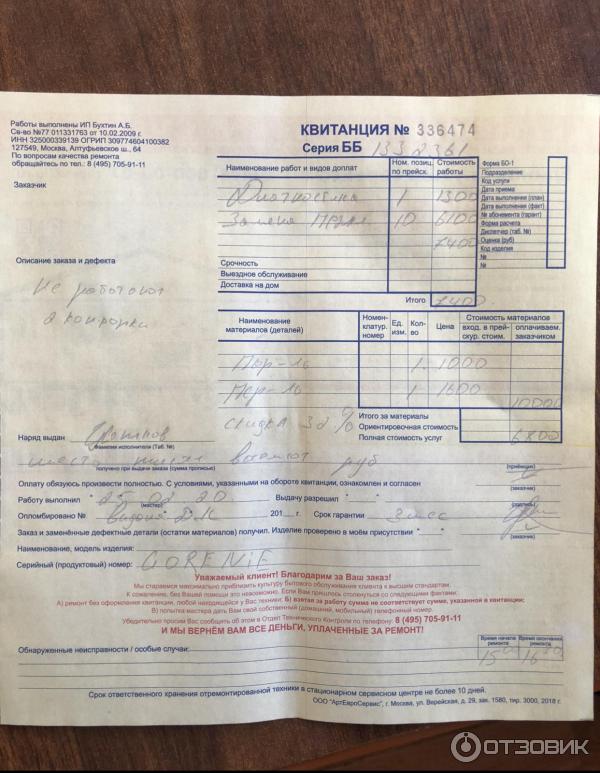 Работы выполнены ИП Бухтин А.Б.
Св-во №77 011331763 от 10.02.2009 г.
ИНН 325000339139 ОГРИП 309774604100382
127549, Москва, Алтуфьевское ш., 64
По вопросам качества ремонта
обращайтесь по тел.: 8 (495) 705-91-11
КВИТАНЦИЯ № 336474
Серия ББ 1332361
Заказчик
Наименование работ и видов доплат
Ном. позиц. по прейск.
Стоимость работы
Диагностика 1 1300
Замена 10 6100
7400
Срочность
Выездное обслуживание
Доставка на дом
Итого 7400
Форма БО-1
Подразделение
Код услуги
Дата приема
Дата выполнения (план)
Дата выполнения (факт)
№ абонемента (гарант)
Форма расчета
Диспетчер (таб. №)
Оценка (руб)
Код изделия
№
№
Описание заказа и дефекта
Не работают
2 конфорки
Наименование материалов (деталей)
Номен-клатур. номер
Ед. изм.
Кол-во
Цена
Стоимость материалов
вход. в прей-скур. стоим.
оплачиваем. заказчиком
1 1000
1 1600
скидка 32 %
Итого за материалы
Ориентировочная стоимость
Полная стоимость услуг 6800
Наряд выдан
фамилия исполнителя (Таб. №)
шесть восемьсот руб
получено при выдаче заказа (сумма прописью)
(приёмщик)
Оплату обязуюсь произвести полностью. С условиями, указанными на обороте квитанции, ознакомлен и согласен
(заказчик)
Работу выполнил " 25 " 08 20 Выдачу разрешил " "
(мастер)
(подпись)
Опломбировано № 201 г. Срок гарантии 3 мес
(заказчик)
Заказ и заменённые дефектные детали (остатки материалов) получил. Изделие проверено в моём присутствии " "
(заказчик)
Наименование, модель изделия:
Серийный (продуктовый) номер: GORENIE
Уважаемый клиент! Благодарим за Ваш заказ!
Мы стараемся максимально приблизить культуру бытового обслуживания клиента к высшим стандартам.
К сожалению, без Вашей помощи это невозможно. Если Вам пришлось столкнуться со следующими фактами:
А) ремонт без оформления квитанции, любой находящейся у Вас техники; Б) взятая за работу сумма не соответствует сумме, указанной в квитанции;
В) попытка мастера дать Вам свой собственный (домашний, мобильный) телефонный номер.
Убедительно просим Вас сообщить об этом в Отдел Технического Контроля по телефону: 8 (495) 705-91-11
И МЫ ВЕРНЁМ ВАМ ВСЕ ДЕНЬГИ, УПЛАЧЕННЫЕ ЗА РЕМОНТ!
Обнаруженные неисправности / особые случаи:
Время начала ремонта
Время окончания ремонта
Срок ответственного хранения отремонтированной техники в стационарном сервисном центре не более 10 дней.
ООО "АртЕвроСервис", г. Москва, ул. Верейская, д. 29, зак. 1580, тир. 3000, 2018 г.
ОТЗОВИК